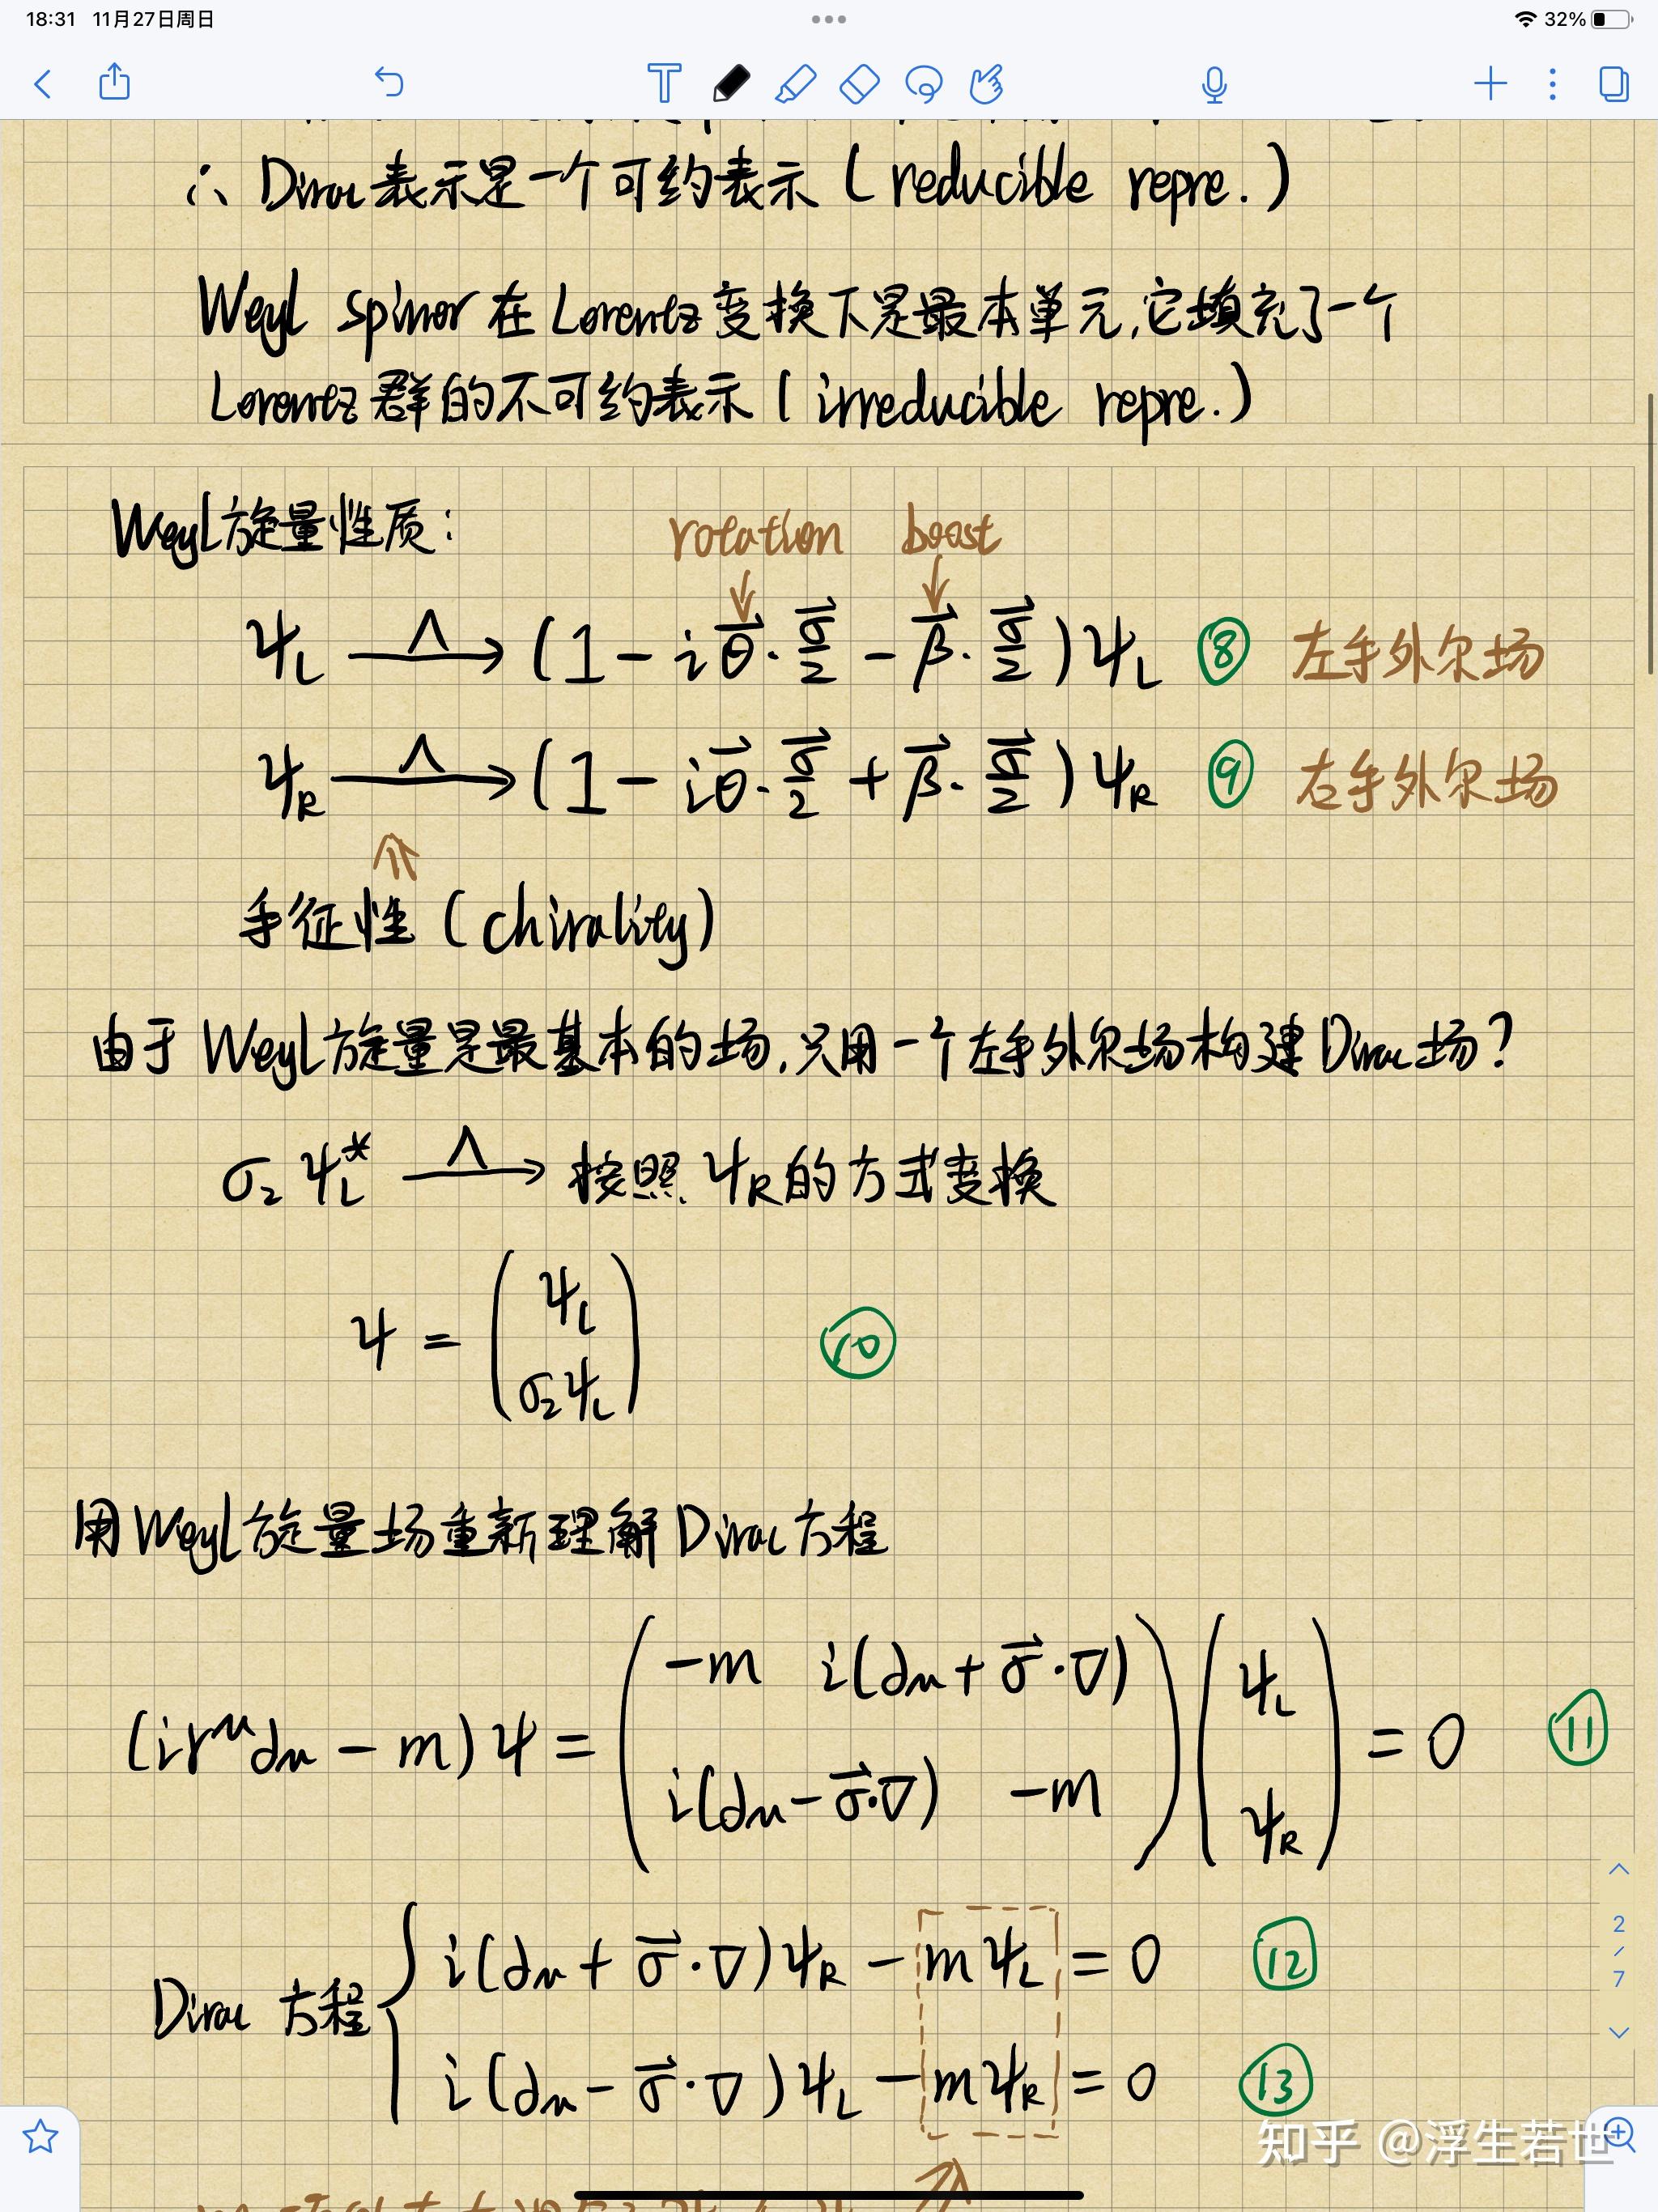 18:31 11月27日周日
32%
∴ Dirac表示是一个可约表示 ( reducible repre. )
Weyl spinor 在 Lorentz 变换下是最本单元,它填充了一个
Lorentz 群的不可约表示 ( irreducible repre. )
Weyl旋量性质:
rotation boost
ψ_L —Λ→ (1 - i θ⃗·σ⃗/2 - β⃗·σ⃗/2 ) ψ_L ⑧ 左手外尔场
ψ_R —Λ→ (1 - i θ⃗·σ⃗/2 + β⃗·σ⃗/2 ) ψ_R ⑨ 右手外尔场
手征性 ( chirality )
由于 Weyl旋量是最基本的场,只用一个左手外尔场构建 Dirac场?
σ₂ψ_L^* —Λ→ 按照 ψ_R 的方式变换
ψ = ( ψ_L
σ₂ψ_L ) ⑩
用Weyl旋量场重新理解Dirac方程
(iγ^μ∂_μ - m) ψ = ( -m i(∂_μ + σ⃗·∇)
i(∂_μ - σ⃗·∇) -m ) ( ψ_L
ψ_R ) = 0 ⑪
Dirac 方程 { i(∂_μ + σ⃗·∇)ψ_R - mψ_L = 0 ⑫
i(∂_μ - σ⃗·∇)ψ_L - mψ_R = 0 ⑬
2/7
知乎 @浮生若世